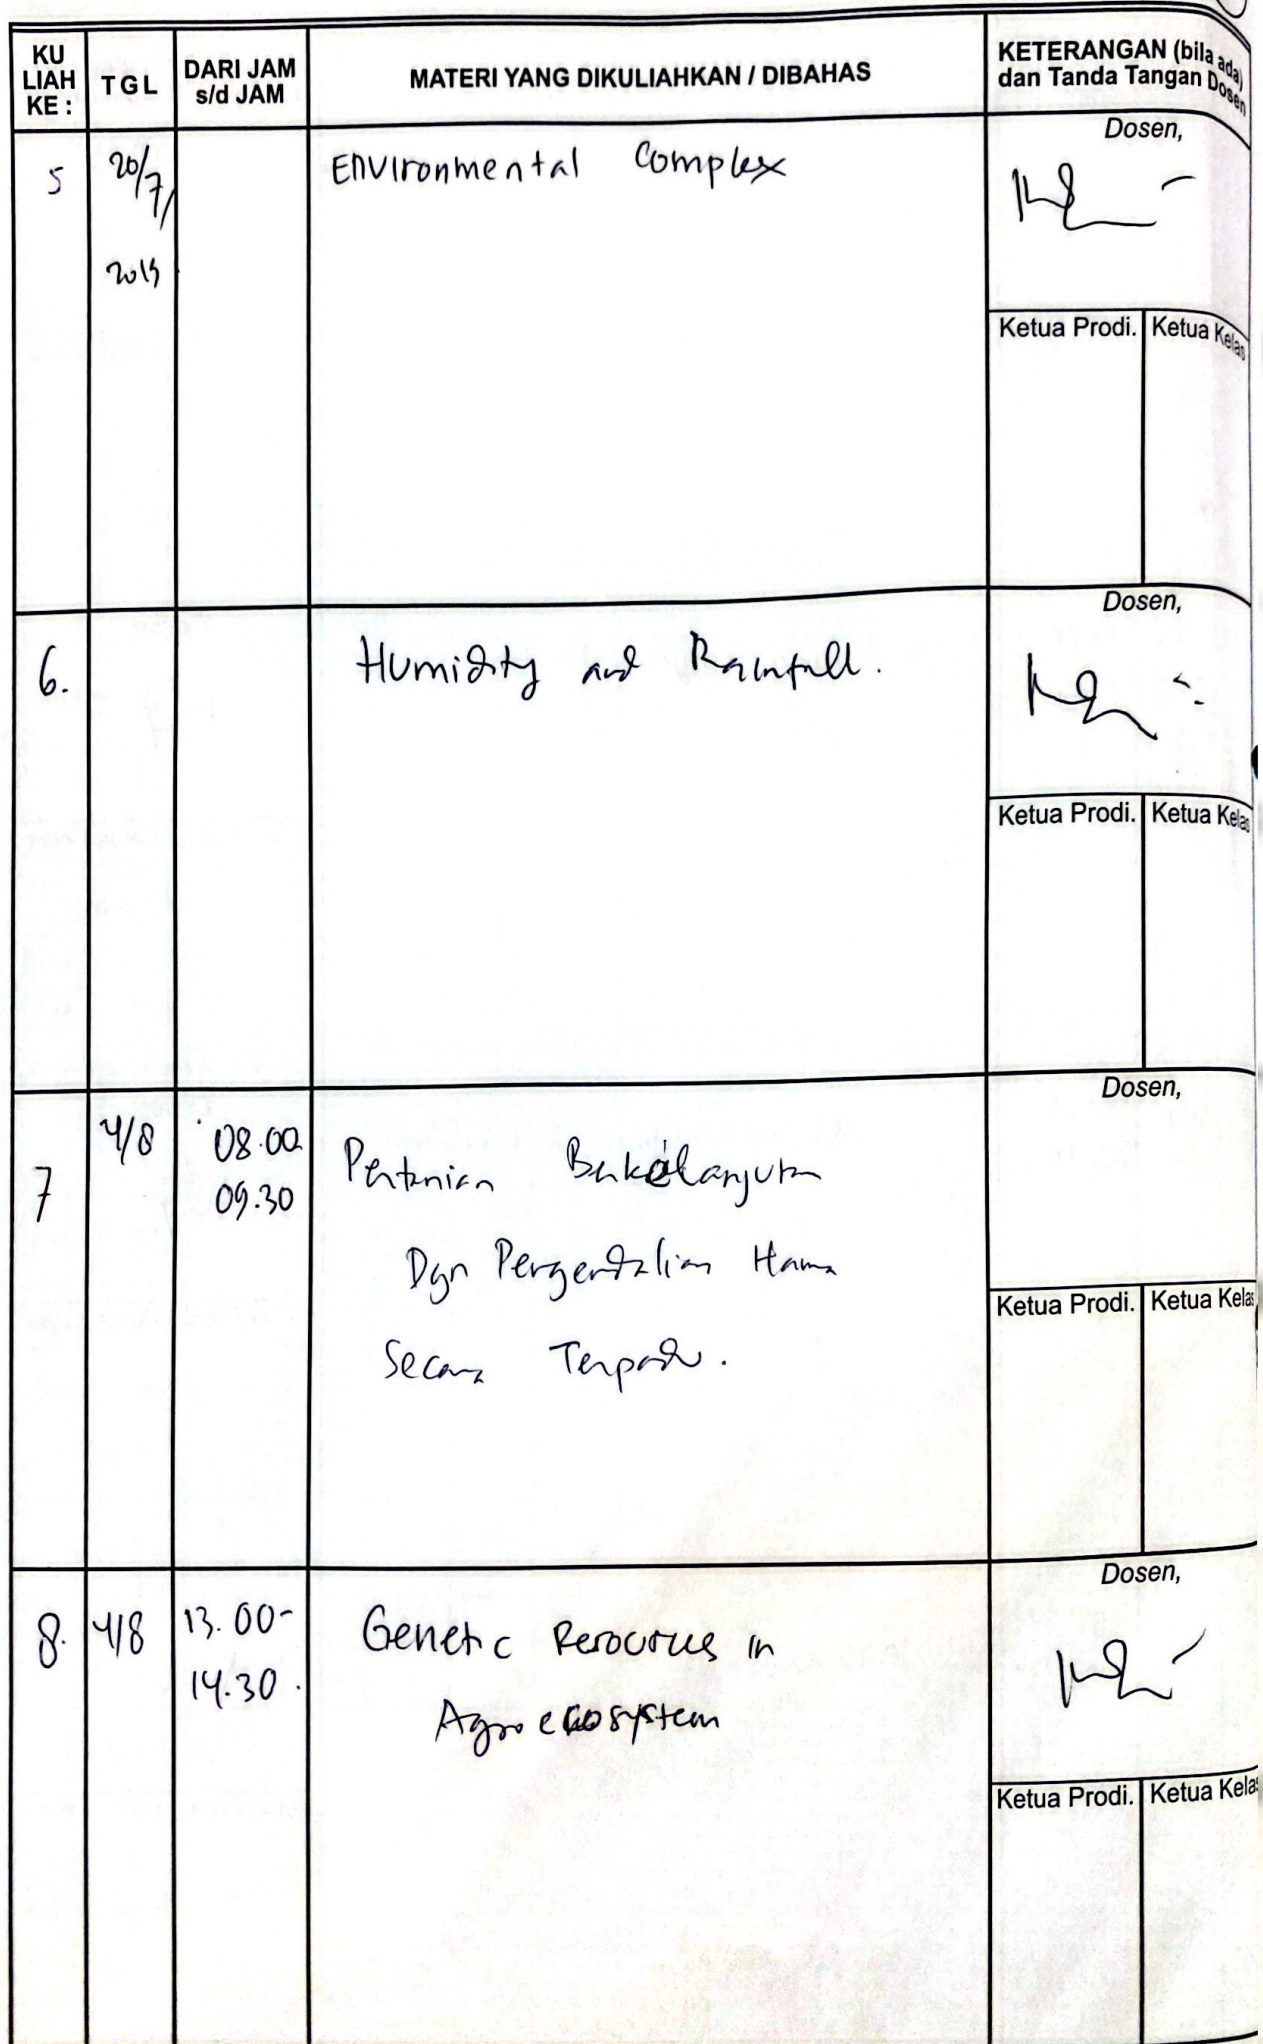 KU LIAH KE :
TGL
DARI JAM s/d JAM
MATERI YANG DIKULIAHKAN / DIBAHAS
KETERANGAN (bila ada)
dan Tanda Tangan Dosen
5
20/7/
2019
Environmental Complex
Dosen,
Ketua Prodi.
Ketua Kelas
6.
Humidity and Rainfall.
Dosen,
Ketua Prodi.
Ketua Kelas
7
4/8
08.00
09.30
Pertanian Berkelanjutan
Dgn Pengendalian Hama
Secara Terpadu.
Dosen,
Ketua Prodi.
Ketua Kelas
8.
4/8
13.00-
14.30.
Genetic Resources in
Agroecosystem
Dosen,
Ketua Prodi.
Ketua Kelas